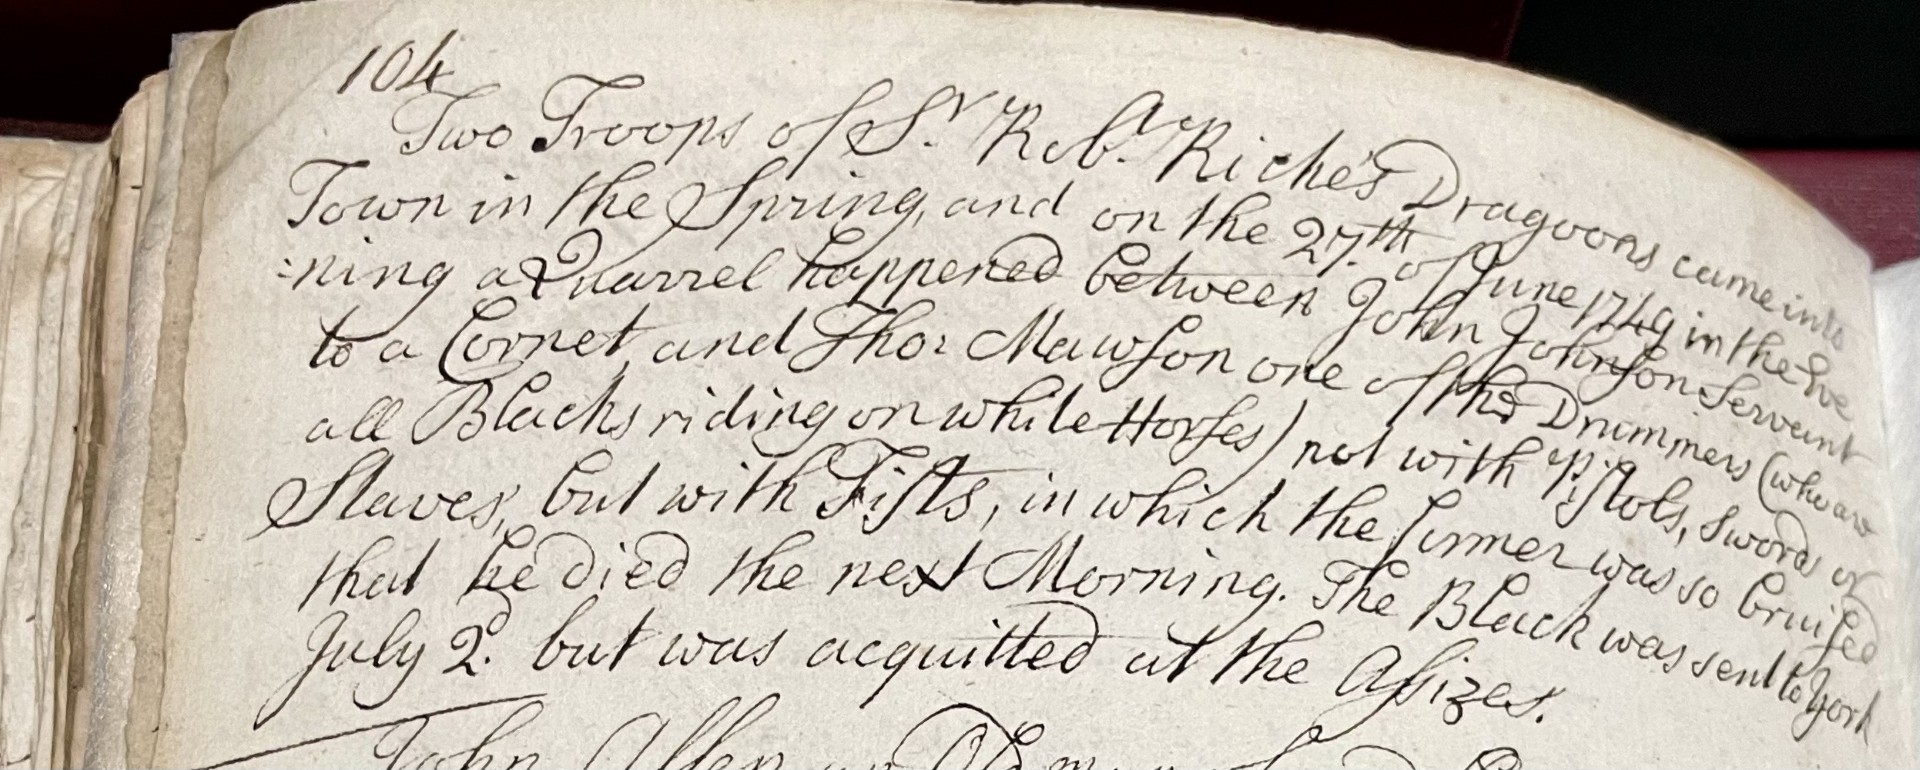 104
Two Troops of Sr. Robt. Riche's Dragoons came into
Town in the Spring, and on the 27.th of June 1749 in the Eve
:ning a Quarrel happened between John Johnson Servant
to a Cornet, and Thos: Mawson one of the Drummers (who are
all Blacks riding on white Horses) not with Pistols, Swords or
Staves, but with Fists, in which the former was so bruised
that he died the next Morning. The Black was sent to York
July 2d. but was acquitted at the Assizes.
John Allen an Old man